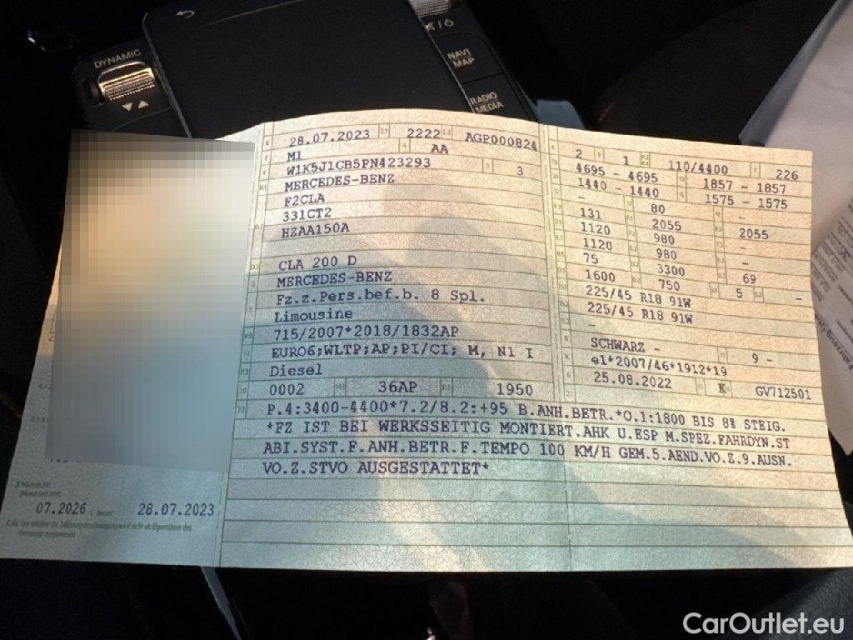 DYNAMIC
NAVI
MAP
RADIO
MEDIA
28.07.2023 2222 AGP000824
M1 AA
W1K5J1CB5PN423293 3
MERCEDES-BENZ
F2CLA
331CT2
HZAA150A
CLA 200 D
MERCEDES-BENZ
Fz.z.Pers.bef.b. 8 Spl.
Limousine
715/2007*2018/1832AP
EURO6;WLTP;AP;PI/CI; M, N1 I
Diesel
0002 36AP 1950
2 1 110/4400 226
4695 - 4695 1857 - 1857
1440 - 1440 1575 - 1575
- 80 -
131 2055 2055
1120 980 -
1120 980
75 3300 69
1600 750 5 -
225/45 R18 91W
225/45 R18 91W
-
SCHWARZ - 9 -
e1*2007/46*1912*19
25.08.2022 K GV712501
P.4:3400-4400*7.2/8.2:+95 B.ANH.BETR.*O.1:1800 BIS 8% STEIG.
*FZ IST BEI WERKSSEITIG MONTIERT.AHK U.ESP M.SPEZ.FAHRDYN.ST
ABI.SYST.F.ANH.BETR.F.TEMPO 100 KM/H GEM.5.AEND.VO.Z.9.AUSN.
VO.Z.STVO AUSGESTATTET*
07.2026 28.07.2023
CarOutlet.eu